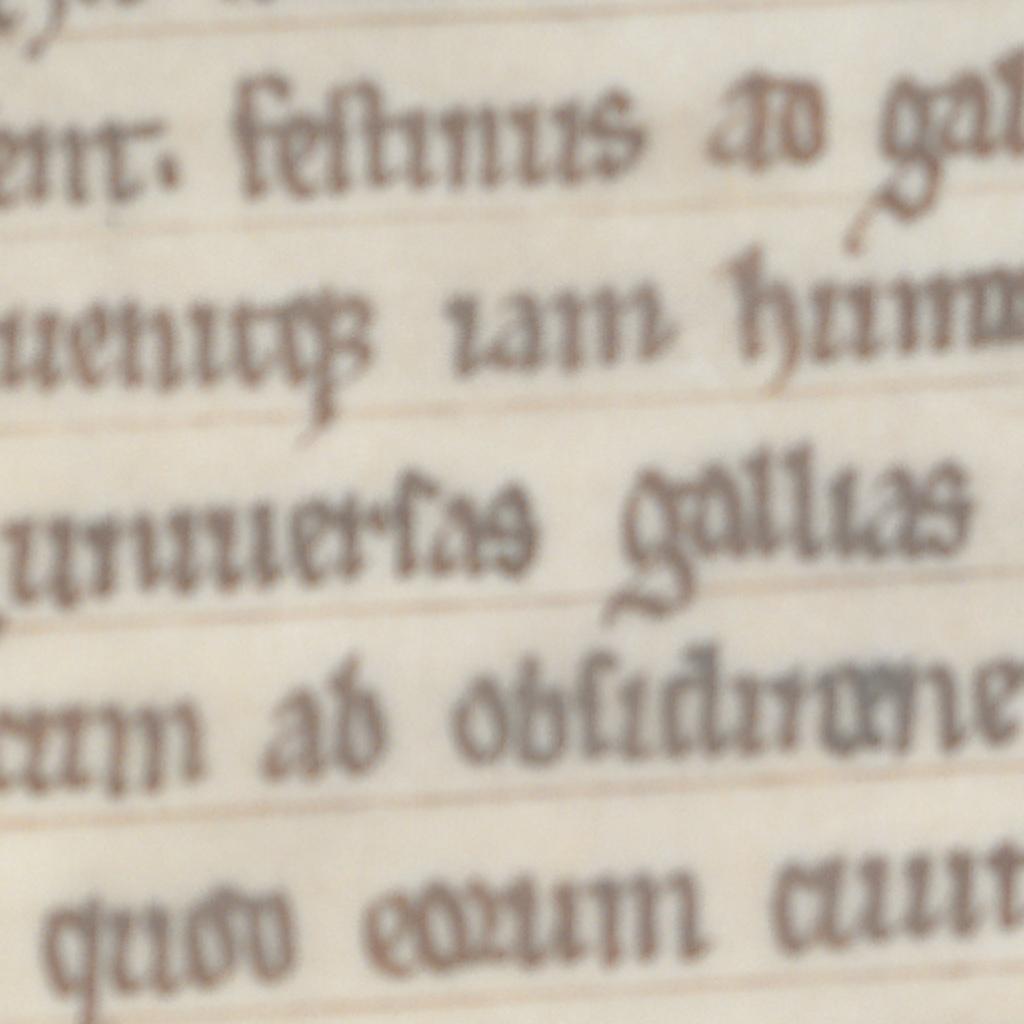 festinus ad gal
uenitqꝫ iam
uniuersas gallias
ab obsidione
quod eorum ciuit